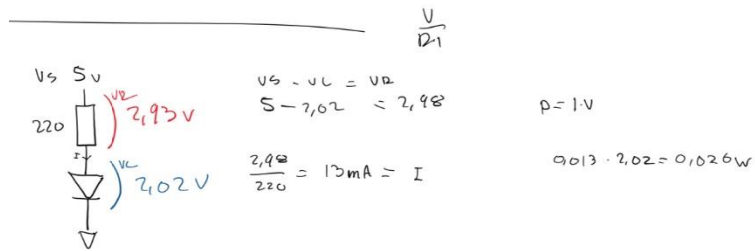 V
R1
Vs 5v
VR
2,93V
220
I
VL
2,02V
VS - VL = VR
5 - 2,02 = 2,98
2,98
220
= 13mA = I
P = I·V
0,013 · 2,02 = 0,026W